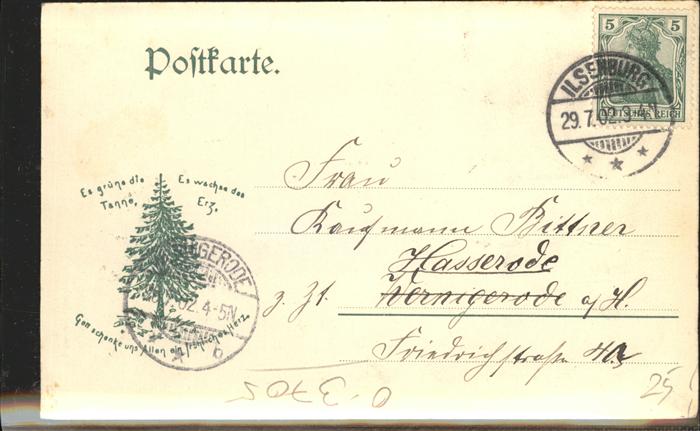 Postkarte.
5 5
DEUTSCHES REICH
ILSENBURG
29.7.02.
Es grüne die
Tanne,
Es wachse das
Erz,
Gott schenke uns Allen ein fröhliches Herz
02.4-5N.
Frau
Kaufmann Bittner
Hasserode
z. Zt. Wernigerode a/H.
Friedrichstraße
25